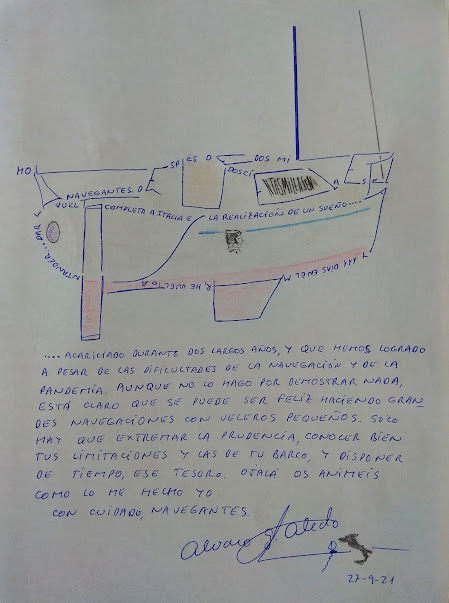 HO
NAVEGANTES. D
SP
ES D
DOS MI
DOSCI
NTAS MILLAS
Y 111 DIAS EN EL M
R, HE VUELTO A
NTANDER... DAR L
VUEL
COMPLETA A ITALIA E
LA REALIZACION DE UN SUEÑO....
.... ACARICIADO DURANTE DOS LARGOS AÑOS, Y QUE HEMOS LOGRADO
A PESAR DE LAS DIFICULTADES DE LA NAVEGACIÓN Y DE LA
PANDEMIA. AUNQUE NO LO HAGO POR DEMOSTRAR NADA,
ESTÁ CLARO QUE SE PUEDE SER FELIZ HACIENDO GRAN
DES NAVEGACIONES CON VELEROS PEQUEÑOS. SOLO
HAY QUE EXTREMAR LA PRUDENCIA, CONOCER BIEN
TUS LIMITACIONES Y LAS DE TU BARCO, Y DISPONER
DE TIEMPO, ESE TESORO. OJALÁ OS ANIMEIS
COMO LO HE HECHO YO
CON CUIDADO, NAVEGANTES.
27-9-21